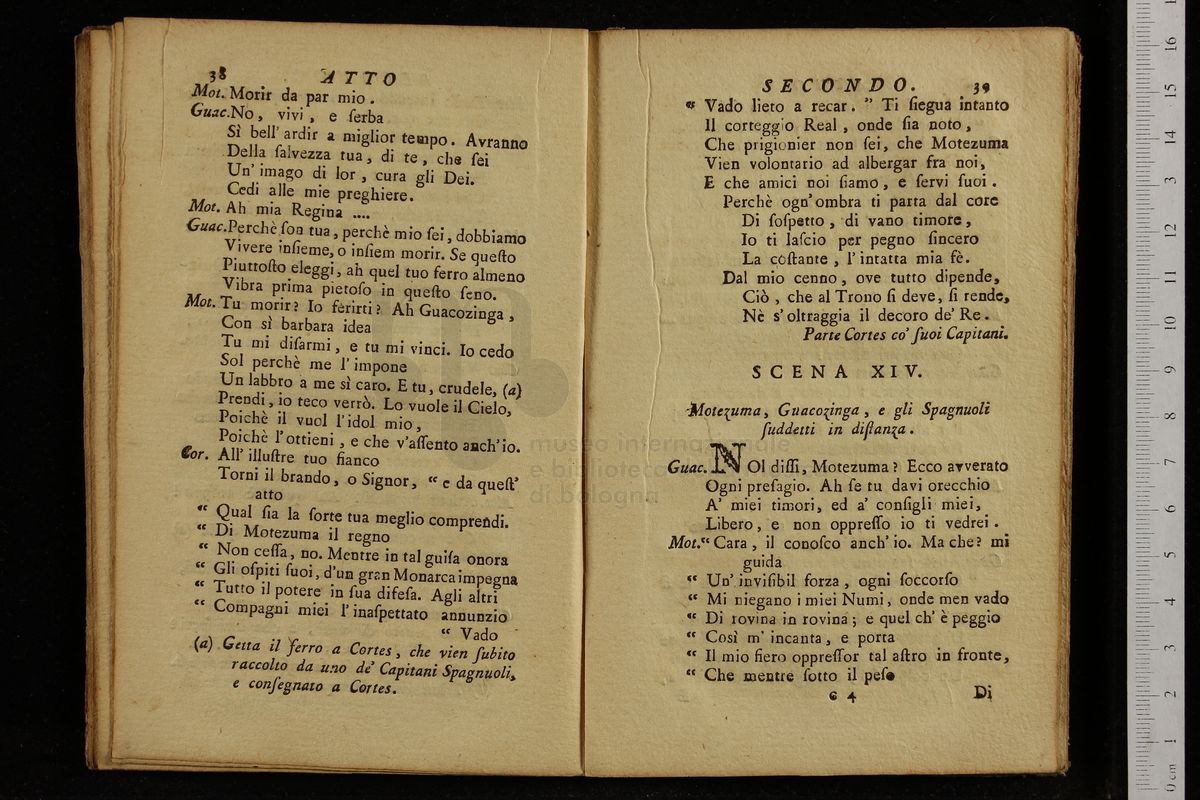 38 ATTO
Mot. Morir da par mio.
Guac. No, vivi, e ſerba
Sì bell' ardir a miglior tempo. Avranno
Della ſalvezza tua, di te, che ſei
Un' imago di lor, cura gli Dei.
Cedi alle mie preghiere.
Mot. Ah mia Regina ....
Guac. Perchè ſon tua, perchè mio ſei, dobbiamo
Vivere inſieme, o inſiem morir. Se queſto
Piuttoſto eleggi, ah quel tuo ferro almeno
Vibra prima pietoſo in queſto ſeno.
Mot. Tu morir? Io ferirti? Ah Guacozinga,
Con sì barbara idea
Tu mi diſarmi, e tu mi vinci. Io cedo
Sol perchè me l'impone
Un labbro a me sì caro. E tu, crudele, (a)
Prendi, io teco verrò. Lo vuole il Cielo,
Poichè il vuol l'idol mio,
Poichè l'ottieni, e che v'aſſento anch'io.
Cor. All' illuſtre tuo fianco
Torni il brando, o Signor, “ e da queſt'
atto
“ Qual ſia la ſorte tua meglio comprendi.
“ Di Motezuma il regno
“ Non ceſſa, no. Mentre in tal guiſa onora
“ Gli oſpiti ſuoi, d'un gran Monarca impegna
“ Tutto il potere in ſua difeſa. Agli altri
“ Compagni miei l'inaſpettato annunzio
“ Vado
(a) Getta il ferro a Cortes, che vien ſubito
raccolto da uno de' Capitani Spagnuoli,
e conſegnato a Cortes.
SECONDO. 39
“ Vado lieto a recar. ” Ti ſiegua intanto
Il corteggio Real, onde ſia noto,
Che prigionier non ſei, che Motezuma
Vien volontario ad albergar fra noi,
E che amici noi ſiamo, e ſervi ſuoi.
Perchè ogn' ombra ti parta dal core
Di ſoſpetto, di vano timore,
Io ti laſcio per pegno ſincero
La coſtante, l'intatta mia fè.
Dal mio cenno, ove tutto dipende,
Ciò, che al Trono ſi deve, ſi rende,
Nè s'oltraggia il decoro de' Re.
Parte Cortes co' ſuoi Capitani.
SCENA XIV.
Motezuma, Guacozinga, e gli Spagnuoli
ſuddetti in diſtanza.
Guac. NOl diſſi, Motezuma? Ecco avverato
Ogni preſagio. Ah ſe tu davi orecchio
A' miei timori, ed a' conſigli miei,
Libero, e non oppreſſo io ti vedrei.
Mot. “ Cara, il conoſco anch'io. Ma che? mi
guida
“ Un' inviſibil forza, ogni ſoccorſo
“ Mi niegano i miei Numi, onde men vado
“ Di rovina in rovina; e quel ch'è peggio
“ Così m'incanta, e porta
“ Il mio fiero oppreſſor tal aſtro in fronte,
“ Che mentre ſotto il peſo
C 4 Di
museo internazionale
e biblioteca
di bologna
0 cm 1 2 3 4 5 6 7 8 9 10 11 12 13 14 15 16